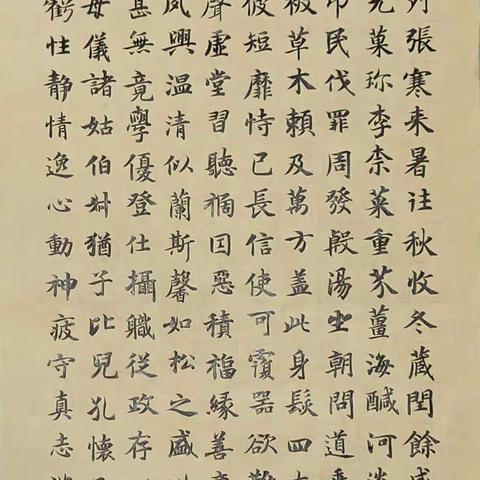 列張寒来暑往秋收冬藏閏餘成
光菓珍李柰菜重芥薑海鹹河淡
弔民伐罪周發殷湯坐朝問道垂
被草木賴及萬方蓋此身髮四大
彼短靡恃己長信使可覆器欲難
聲虛堂習聽禍因惡積福緣善慶
夙興温清似蘭斯馨如松之盛川
甚無竟學優登仕攝職從政存
母儀諸姑伯叔猶子比兒孔懷
虧性静情逸心動神疲守真志滿